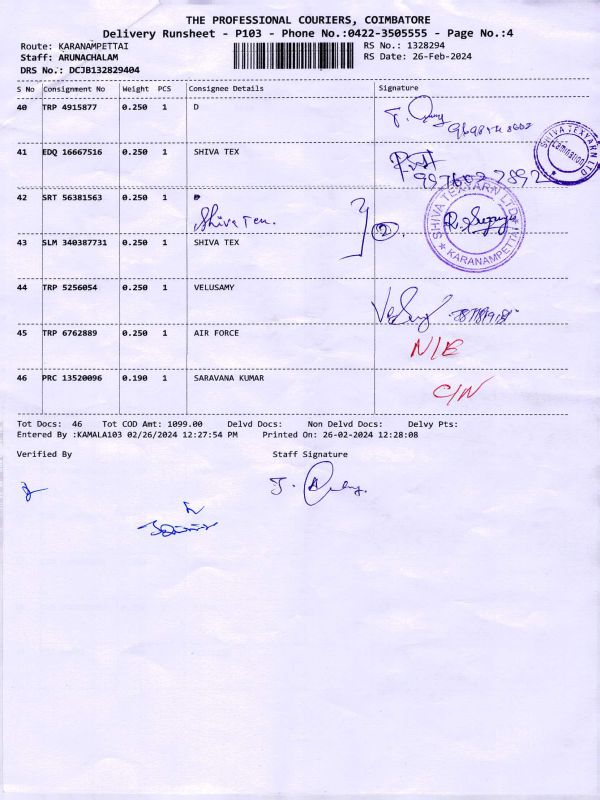 THE PROFESSIONAL COURIERS, COIMBATORE
Delivery Runsheet - P103 - Phone No.:0422-3505555 - Page No.:4
Route: KARANAMPETTAI RS No.: 1328294
Staff: ARUNACHALAM RS Date: 26-Feb-2024
DRS No.: DCJB132829404
S No Consignment No Weight PCS Consignee Details Signature
40 TRP 4915877 0.250 1 D
SHIVA TEXYARN LTD
41 EDQ 16667516 0.250 1 SHIVA TEX
42 SRT 56381563 0.250 1 D
Shiva Tex. 2. SHIVA TEXYARN LTD
KARANAMPETTAI
43 SLM 340387731 0.250 1 SHIVA TEX
44 TRP 5256054 0.250 1 VELUSAMY
45 TRP 6762889 0.250 1 AIR FORCE N/E
46 PRC 13520096 0.190 1 SARAVANA KUMAR C/N
Tot Docs: 46 Tot COD Amt: 1099.00 Delvd Docs: Non Delvd Docs: Delvy Pts:
Entered By :KAMALA103 02/26/2024 12:27:54 PM Printed On: 26-02-2024 12:28:08
Verified By Staff Signature